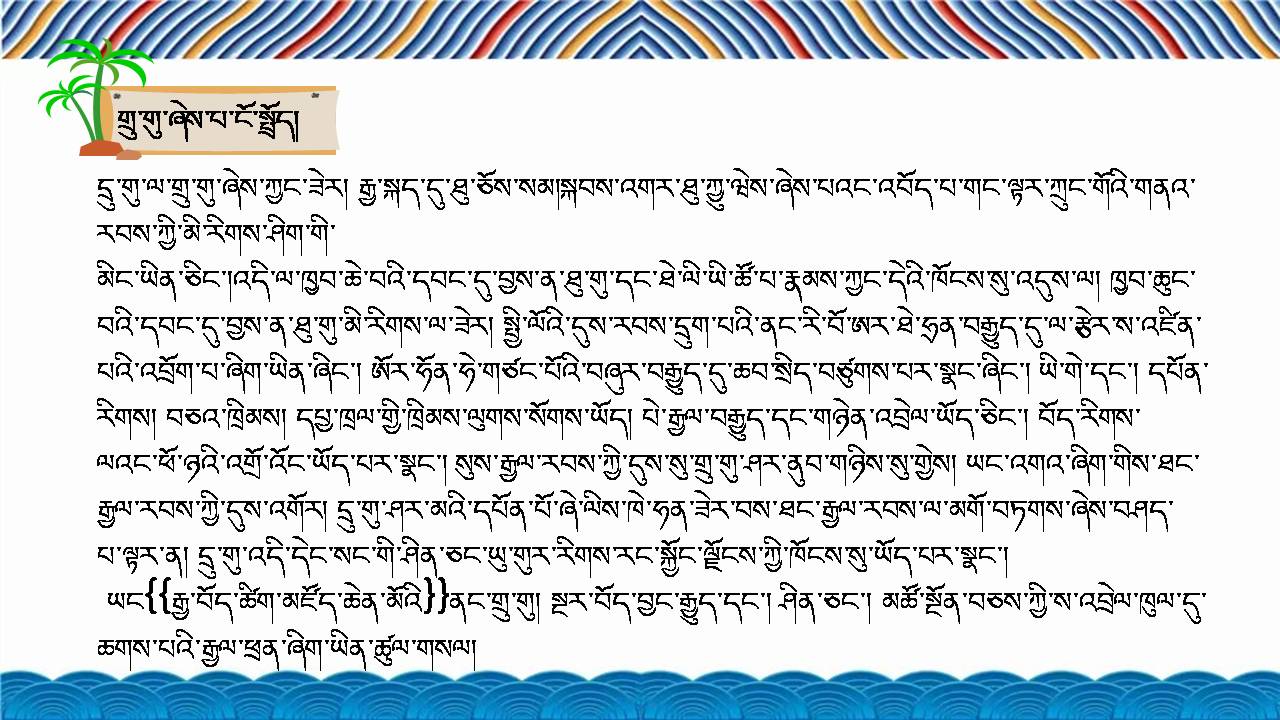 གྲུ་གུ་ཞེས་པ་ངོ་སྤྲོད།
དྲུ་གུ་ལ་གྲུ་གུ་ཞེས་ཀྱང་ཟེར། རྒྱ་སྐད་དུ་ཐུ་ཅོས་སམ།སྐབས་འགར་ཐུ་ཀྱུ་ཝེས་ཞེས་པའང་འབོད་པ་གང་ལྟར་ཀྲུང་གོའི་གནའ་
རབས་ཀྱི་མི་རིགས་ཤིག་གི་
མིང་ཡིན་ཅིང་།འདི་ལ་ཁྱབ་ཆེ་བའི་དབང་དུ་བྱས་ན་ཐུ་གུ་དང་ཐེ་ལི་ཡི་ཚོ་པ་རྣམས་ཀྱང་དེའི་ཁོངས་སུ་འདུས་ལ། ཁྱབ་ཆུང་
བའི་དབང་དུ་བྱས་ན་ཐུ་གུ་མི་རིགས་ལ་ཟེར། སྤྱི་ལོའི་དུས་རབས་དྲུག་པའི་ནང་རི་བོ་ཨར་ཐེ་ཧྲན་བརྒྱུད་དུ་ལ་རྩེར་ས་འཛིན་
པའི་འབྲོག་པ་ཞིག་ཡིན་ཞིང་། ཨོར་ཧོན་ཧེ་གཙང་པོའི་བཞུར་བརྒྱུད་དུ་ཆབ་སྲིད་བཙུགས་པར་སྣང་ཞིང་། ཡི་གེ་དང་། དཔོན་
རིགས། བཅའ་ཁྲིམས། དཔྱ་ཁྲལ་གྱི་ཁྲིམས་ལུགས་སོགས་ཡོད། པེ་རྒྱལ་བརྒྱུད་དང་གཉེན་འབྲེལ་ཡོད་ཅིང་། བོད་རིགས་
ལའང་ཕོ་ཉའི་འགྲོ་འོང་ཡོད་པར་སྣང་། སུས་རྒྱལ་རབས་ཀྱི་དུས་སུ་གྲུ་གུ་ཤར་ནུབ་གཉིས་སུ་གྱེས། ཡང་འགའ་ཞིག་གིས་ཐང་
རྒྱལ་རབས་ཀྱི་དུས་འགོར། དྲུ་གུ་ཤར་མའི་དཔོན་པོ་ཞེ་ལིས་ཁེ་ཧན་ཟེར་བས་ཐང་རྒྱལ་རབས་ལ་མགོ་བཏགས་ཞེས་བཤད་
པ་ལྟར་ན། དྲུ་གུ་འདི་དེང་སང་གི་ཤིན་ཅང་ཡུ་གུར་རིགས་རང་སྐྱོང་ལྗོངས་ཀྱི་ཁོངས་སུ་ཡོད་པར་སྣང་།
ཡང{{རྒྱ་བོད་ཚིག་མཛོད་ཆེན་མོའི}}ནང་གྲུ་གུ། སྔར་བོད་བྱང་རྒྱུད་དང་། ཤིན་ཅང་། མཚོ་སྔོན་བཅས་ཀྱི་ས་འབྲེལ་ཁུལ་དུ་
ཆགས་པའི་རྒྱལ་ཕྲན་ཞིག་ཡིན་ཚུལ་གསལ།